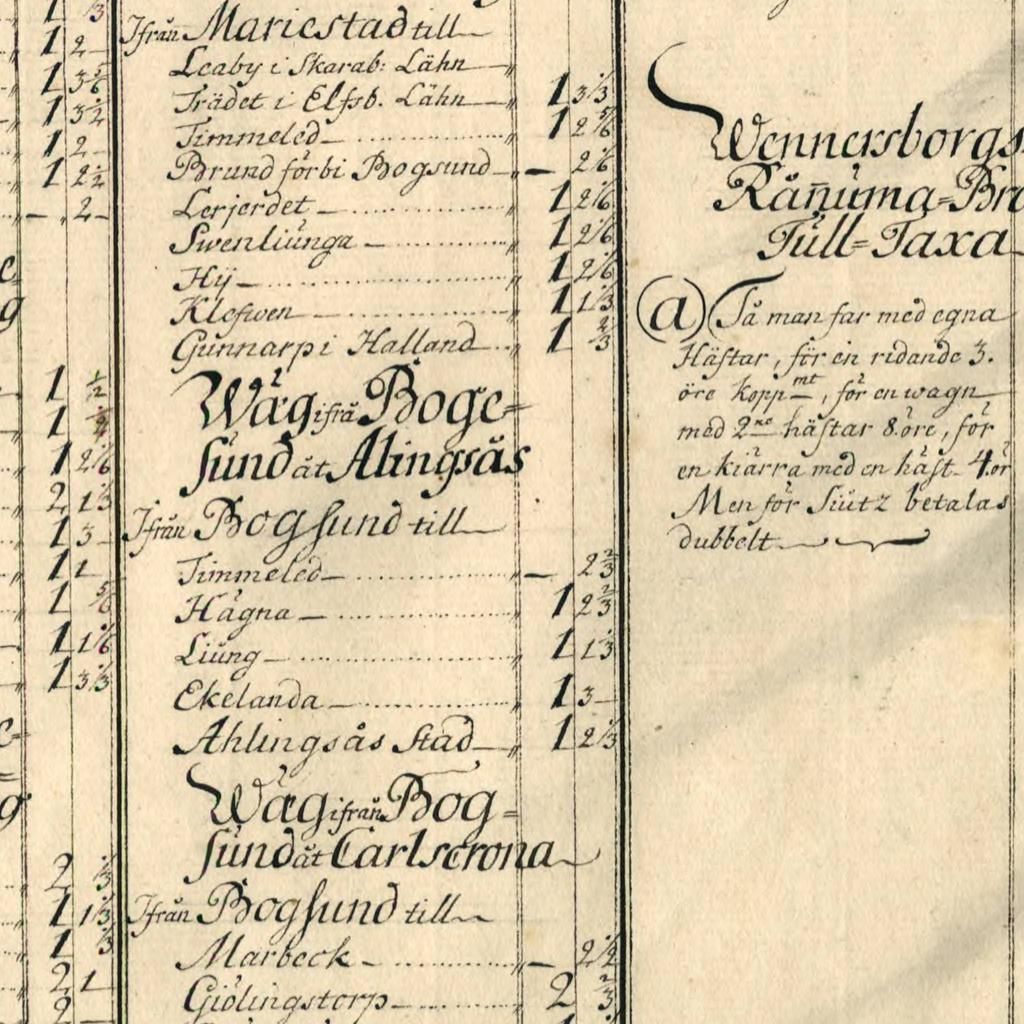 1 1/3
1 2
1 3 5/6
1 3 1/2
1 2
1 2 1/2
— 2
1 1/2
1
1 2 1/6
2 1 1/3
1 3
1 1
1 5/6
1 1 1/6
1 3 1/3
2 1/3
1 1 1/3
1 1/3
2 1
2
Ifrån Mariestad till
Leaby i Skarab: Lähn
Trädet i Elfsb. Lähn 1 3 1/3
Timmeled 1 2 5/6
Brund förbi Bogsund — 2 1/6
Lerjerdet 1 2 1/6
Swenliünga 1 2 1/6
Hij 1 2 1/6
Klefwen 1 1 1/3
Gunnarp i Halland 1 2/3
Wäg ifrå Boge=
sund åt Alingsås
Ifrån Bogsund till
Timmeled — 2 2/3
Hägna 1 2 2/3
Liüng 1 1 1/3
Ekelanda 1 3
Ahlingsås Stad 1 2 1/3
Wäg ifrån Bog=
sund åt Carlscrona
Ifrån Bogsund till
Marbeck — 2 1/2
Giölingstorp 2 2/3
Wennersborgs
Rån̄uma=Bro
Tull=Taxa
(a) Tå man far med egna
Hästar, för en ridande 3.
öre Kopp mt, för en wagn
med 2ne hästar 8. öre, för
en kiärra med en häst 4. ör
Men för Siutz betalas
dubbelt